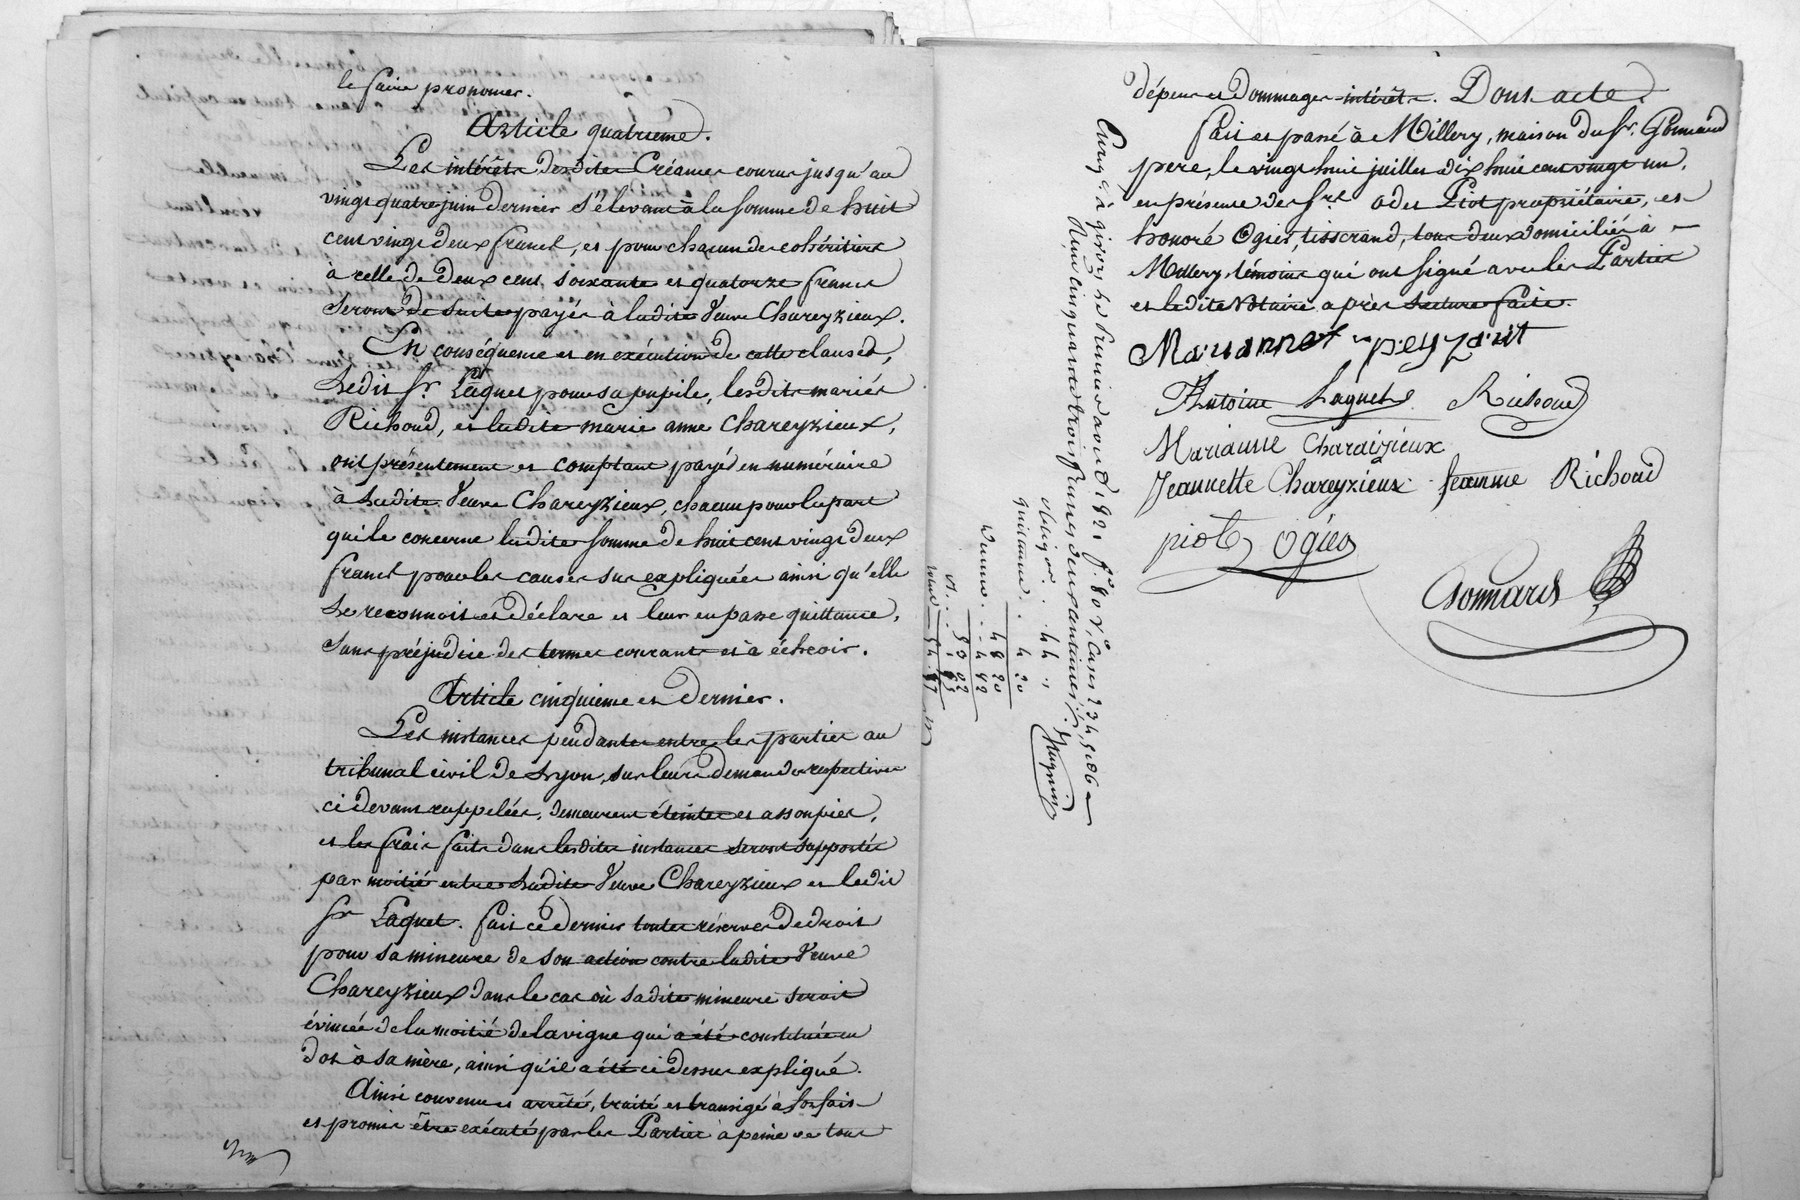 le faire prononcer.
Article quatrieme.
Les intérêts desdites Créances courus jusqu'au
vingt quatre juin dernier s'élevant à la somme de huit
cent vingt deux francs, et pour chacun des cohéritiers
à celle de deux cent soixante et quatorze francs
seront de suite payés à ladite Veuve Chareyzieux.
En conséquence et en exécution de cette clause,
Ledit Sr. Laquet pour sa pupile, lesdits mariés
Richoud, et ladite marie anne Chareyzieux,
ont présentement et comptant payé en numéraire
à Ladite Veuve Chareyzieux, chacun pour la part
qui le concerne ladite somme de huit cent vingt deux
francs pour les causes sus expliquées ainsi qu'elle
Le reconnoit et déclare et leur en passe quittance,
sans préjudice des termes courants et à échéoir.
Article cinquieme et Dernier.
Les instances pendantes entre les parties au
tribunal civil de Lyon, sur leurs demandes respectives
ci devant rappelées, demeurent éteintes et assoupies,
et les frais faits dans lesdites instances seront supportés
par moitié entre Ladite Veuve Chareyzieux et ledit
Sr Laquet. fait ce dernier toutes réserves de droit
pour sa mineure de son action contre ladite Veuve
Chareyzieux dans le cas où sadite mineure seroit
évincée de la moitié de la vigne qui a été constituée en
dot à sa mère, ainsi qu'il a été ci dessus expliqué.
Ainsi convenu et arrêté, traité et transigé à forfait
et promis être exécuté par les Parties à peine de tous
dépens et dommages-intérêts. Dont acte.
fait et passé à Millery, maison du Sr. Gonnard
pere, le vingt huit juillet dix huit cent vingt un,
en présence de Srs odet Piot propriétaire, et
honoré Ogier, tisserand, tous deux domiciliés à
Millery, témoins qui ont signé avec les Parties
et ledit Notaire après lecture faite.
Marianne peyzarit
Antoine Laquet Richoud
Marianne Charaizieux
Jeannette Chareyzieux Jeanne Richoud
piot Ogier
Gonnard
Enreg. à givors le Premier aoust 1821 f° 80 v° Cases 2 3 4 5 et 6
Reçu cinquante trois francs deux centimes
Obligon. 44 "
quittance 4 20
48 20
4 82
53 02